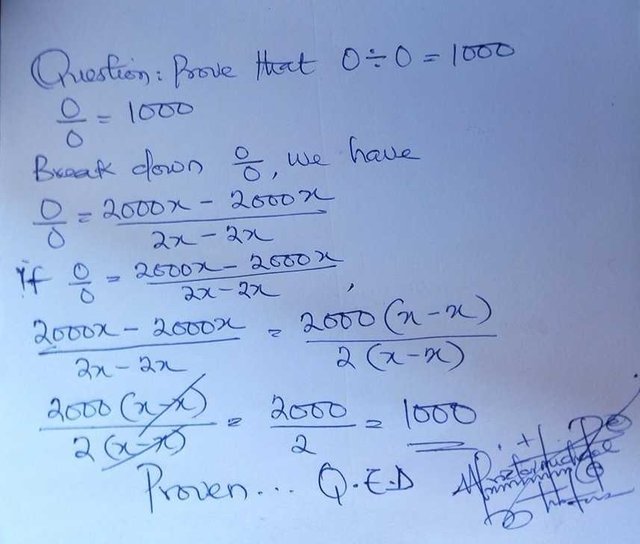 Question: Prove that 0÷0 = 1000
0/0 = 1000
Break down 0/0, we have
0/0 = 2000x - 2000x / 2x - 2x
if 0/0 = 2000x - 2000x / 2x - 2x,
2000x - 2000x / 2x - 2x = 2000(x-x) / 2(x-x)
2000(x-x) / 2(x-x) = 2000/2 = 1000
Proven... Q.E.D